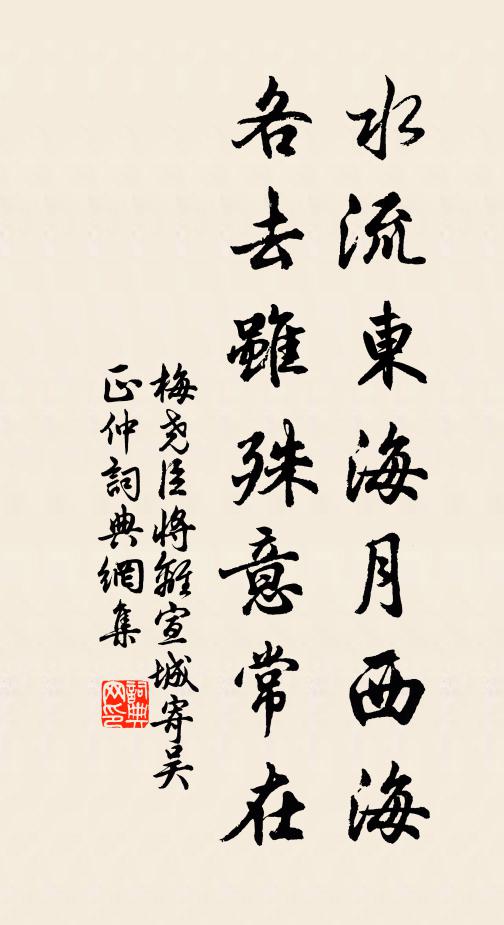 水流東海月西海
各去雖殊意常在
梅堯臣將離宣城寄吳
正仲詞典網集
詞典
网印